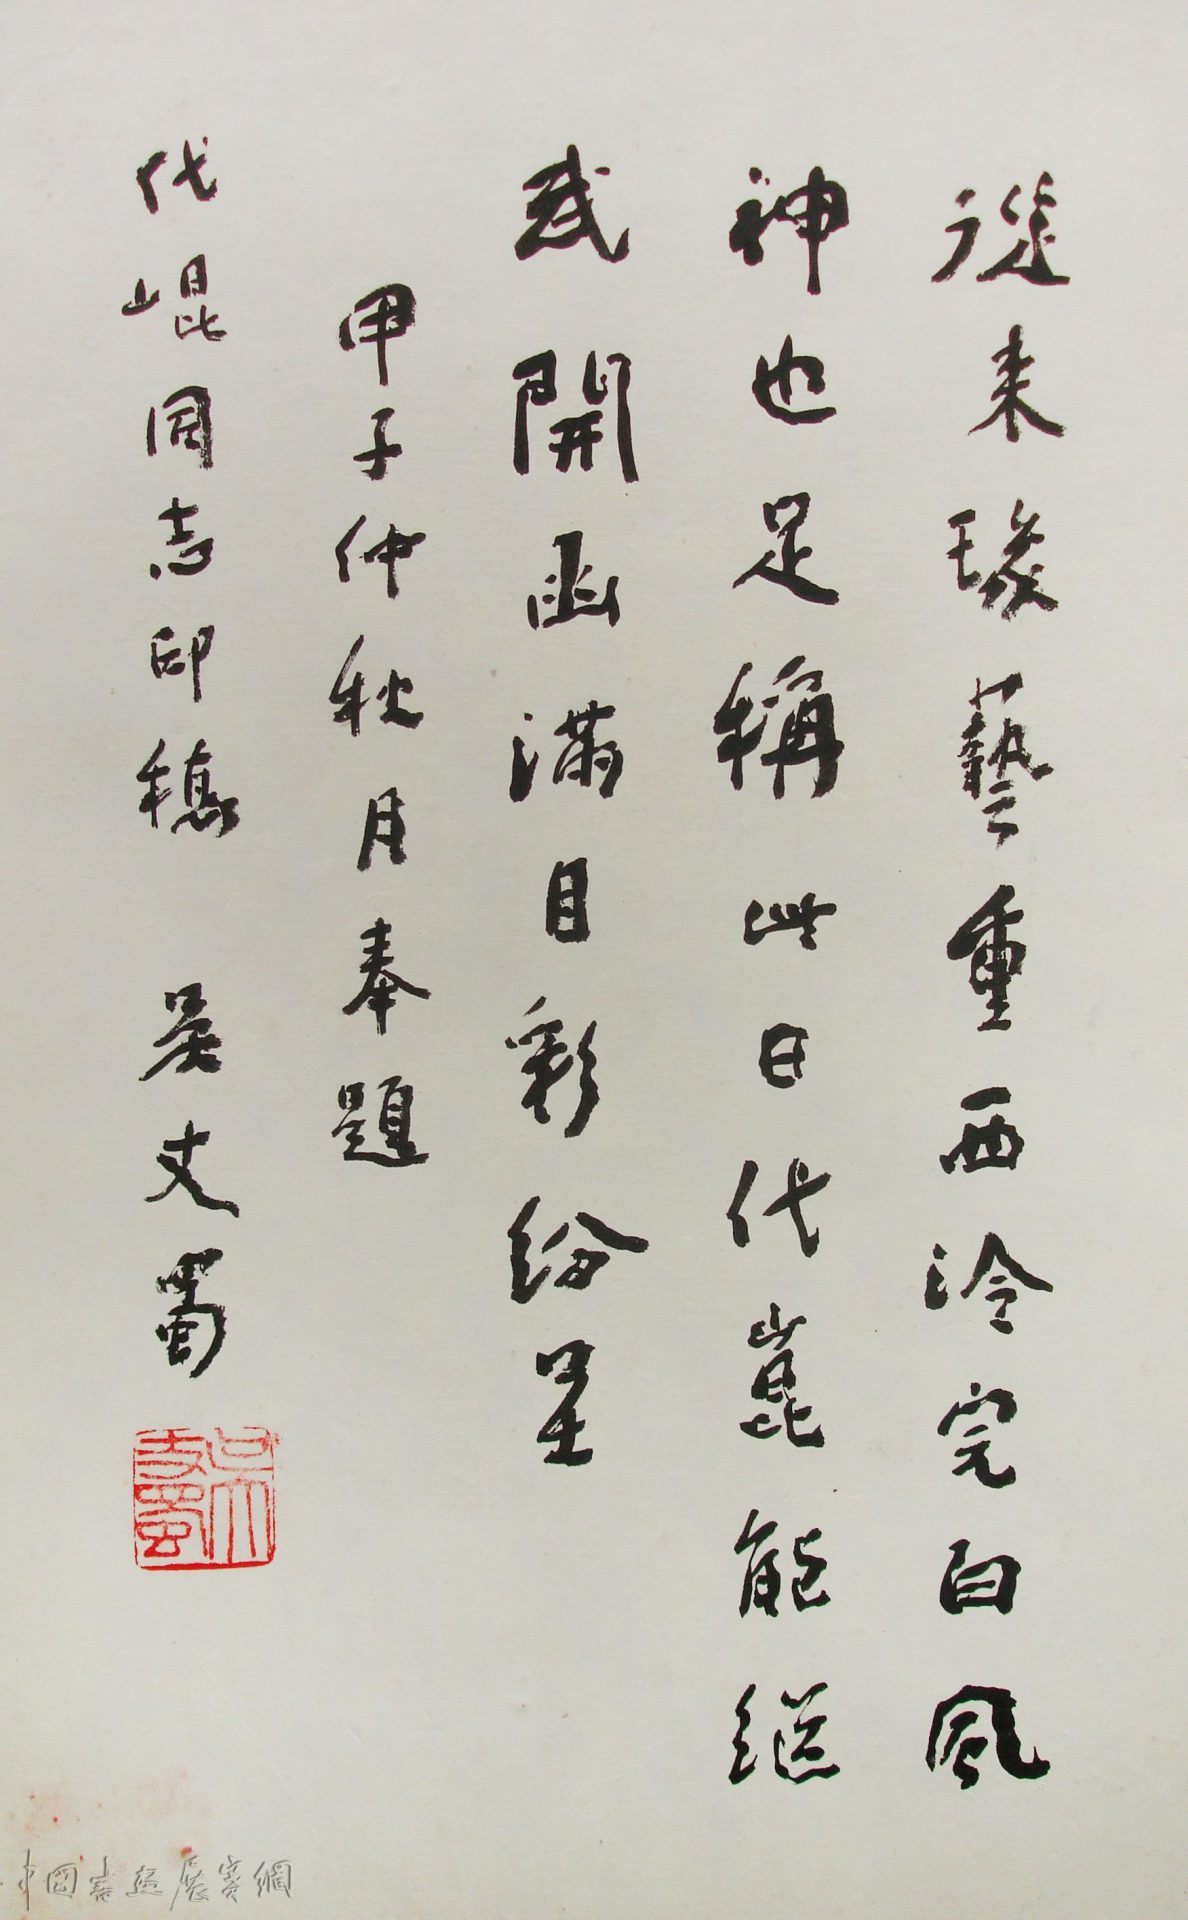 從来瑑藝重西泠完白風
神也足稱此日代崑能继
武開函滿目彩紛呈
甲子仲秋月奉題
代崐同志印穗 吴丈蜀
吴丈蜀
中国書画展賽網